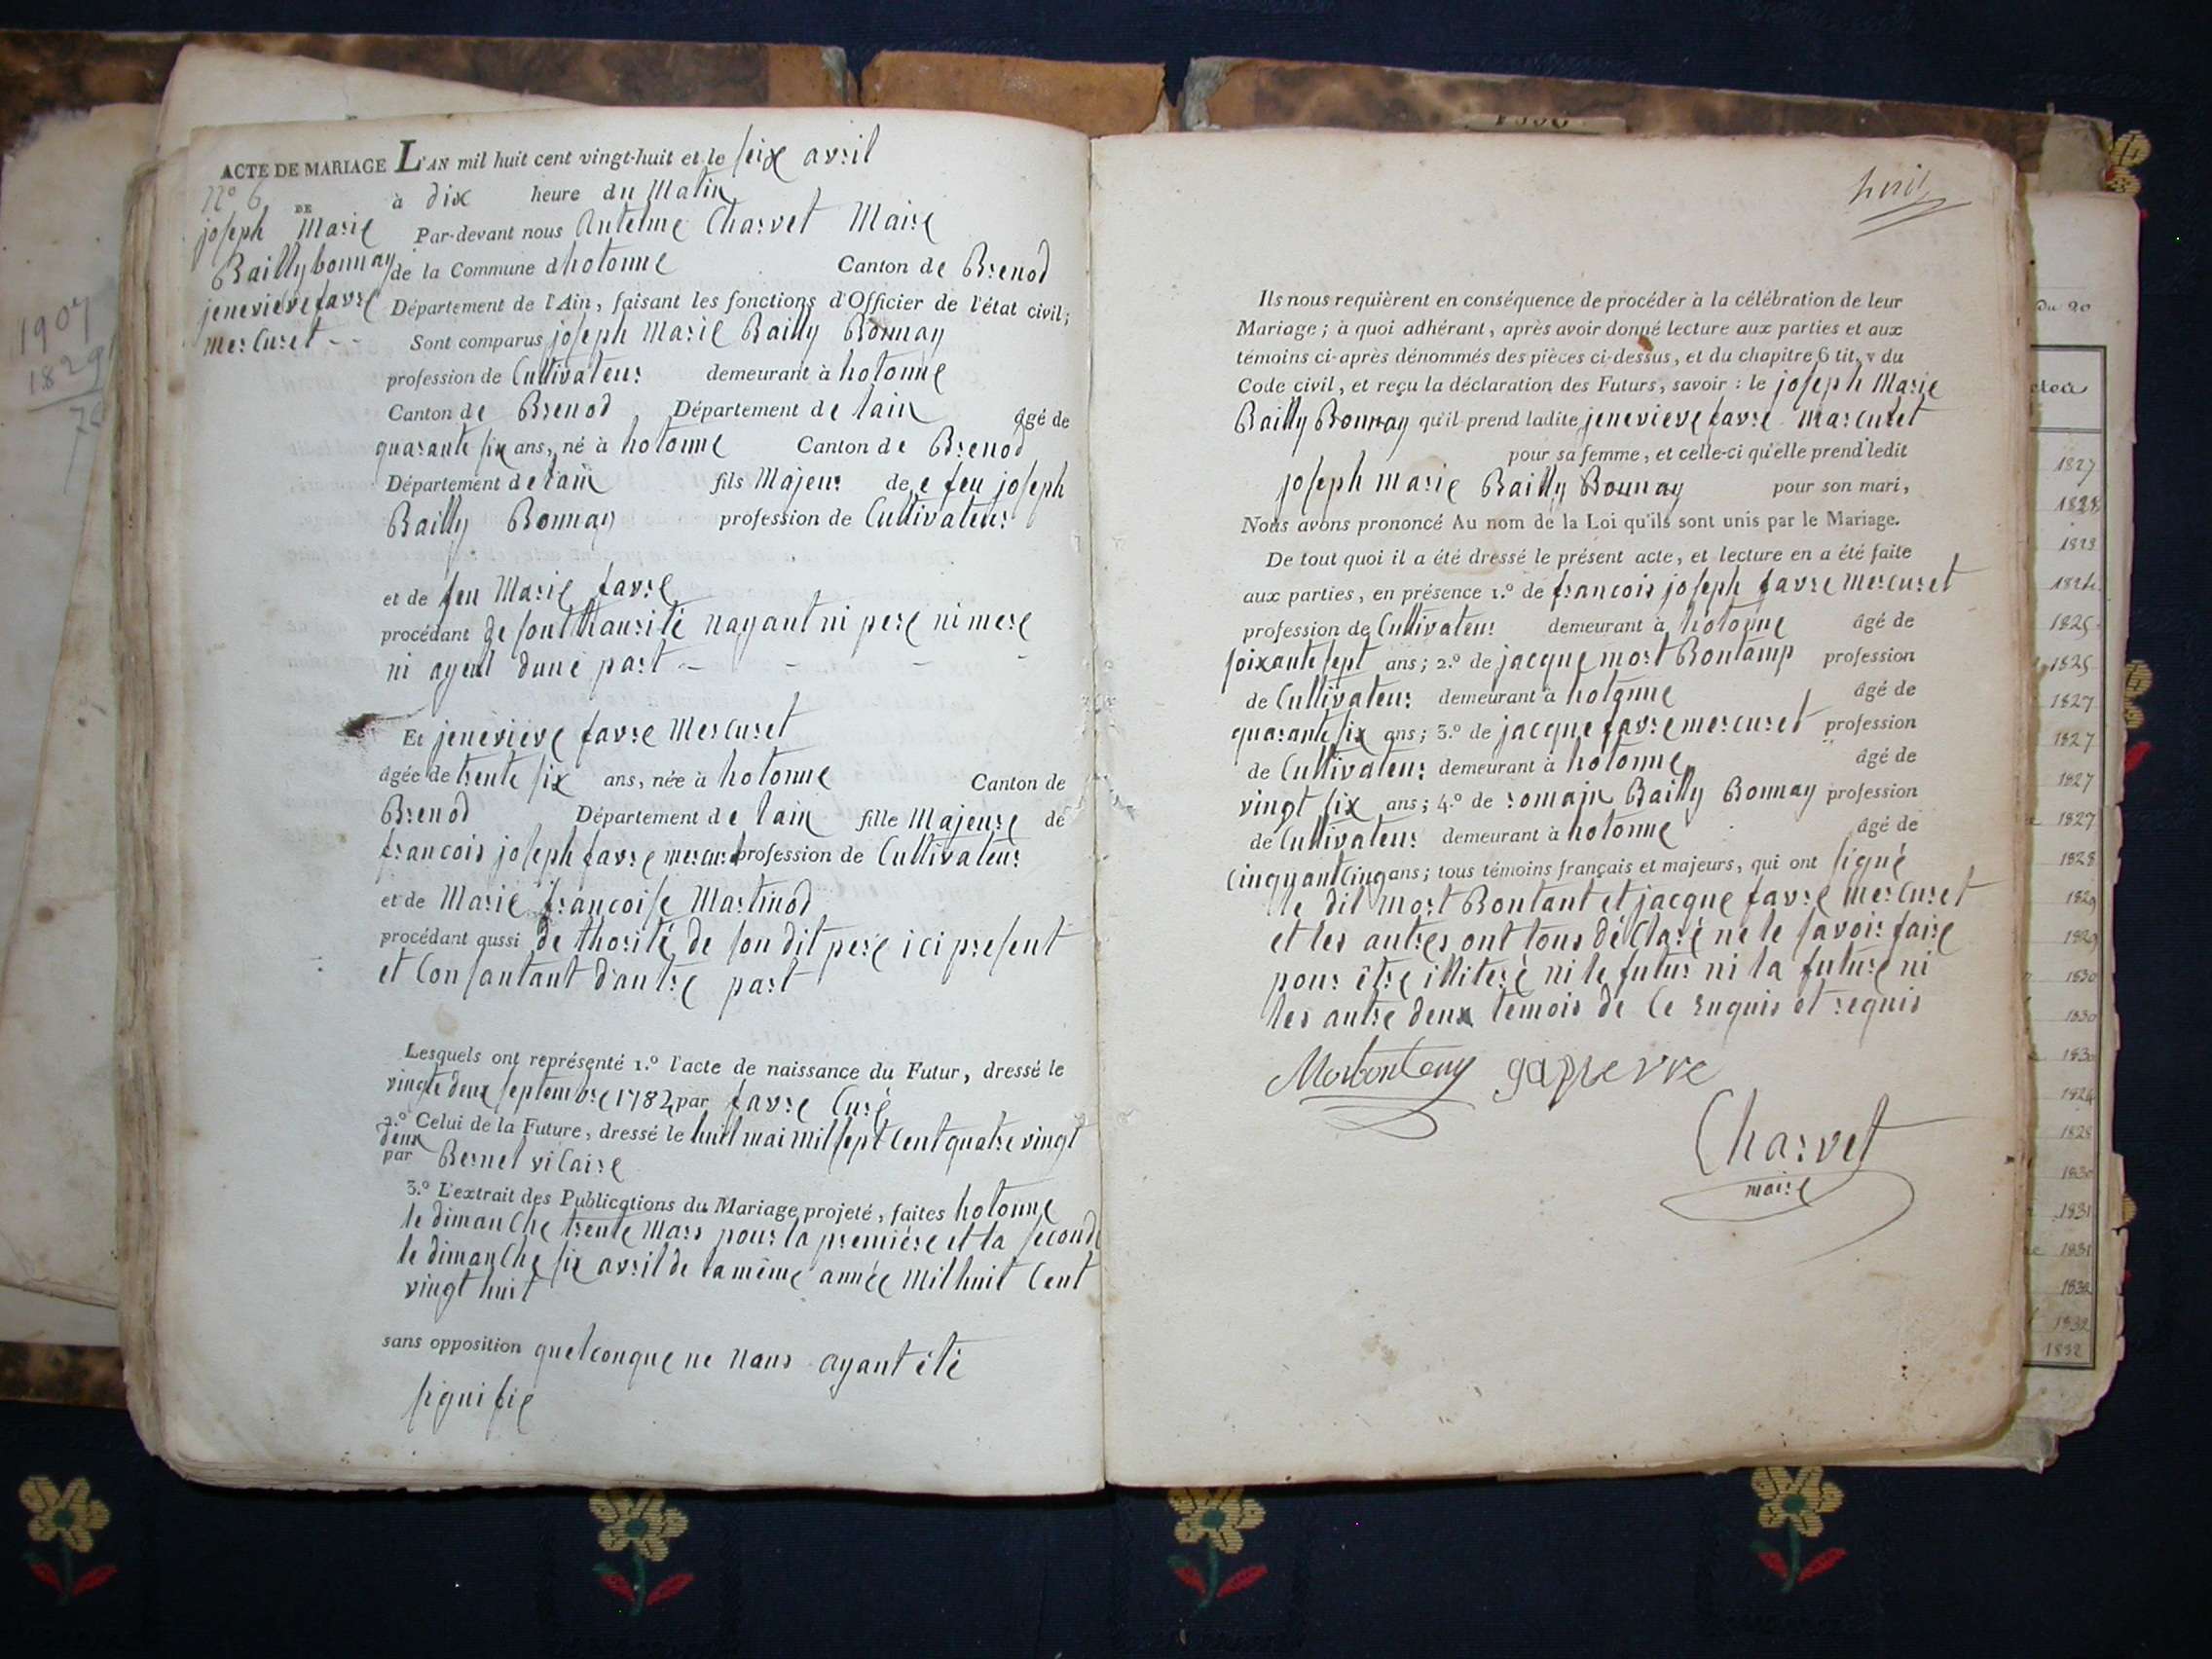 ACTE DE MARIAGE L'AN mil huit cent vingt-huit et le seize avril
N° 6 à dix heure du Matin
DE
joseph Marie
Bailly bonnay
jenevieve favre
mercuret - -
Par-devant nous Antelme Charvet Maire
de la Commune d hotonne Canton de Brenod
Département de l'Ain, faisant les fonctions d'Officier de l'état civil;
Sont comparus joseph Marie Bailly Bonnay
profession de Cultivateur demeurant à hotonne
Canton de Brenod Département de lain âgé de
quarante six ans, né à hotonne Canton de Brenod
Département de lain fils Majeur de e feu joseph
Bailly Bonnay profession de Cultivateur
et de feu Marie favre
procédant de sont thaurité nayant ni pere ni mere
ni ayeul dune part - - - -
Et jenevieve favre Mercuret
âgée de trente six ans, née à hotonne Canton de
Brenod Département de lain fille Majeure de
francois joseph favre mercuret profession de Cultivateur
et de Marie francoise Martinod
procédant aussi de thorité de son dit pere ici present
et Consantant d'autre part
Lesquels ont représenté 1.° l'acte de naissance du Futur, dressé le
vingte deux septembre 1782 par favre Curé
2.° Celui de la Future, dressé le huit mai mil sept Cent quatre vingt
deux
par Bernet vicaire
3.° L'extrait des Publications du Mariage projeté, faites hotonne
le dimanche trente Mars pour la premiére et la seconde
le dimanche six avril de la même année Mil huit Cent
vingt huit
sans opposition quelconque ne nous ayant été
signifie
huit
Ils nous requièrent en conséquence de procéder à la célébration de leur
Mariage; à quoi adhérant, après avoir donné lecture aux parties et aux
témoins ci-après dénommés des pièces ci-dessus, et du chapitre 6 tit. v du
Code civil, et reçu la déclaration des Futurs, savoir : le joseph Marie
Bailly Bonnay qu'il prend ladite jenevieve favre Marcuret
pour sa femme, et celle-ci qu'elle prend ledit
joseph marie Bailly Bonnay pour son mari,
Nous avons prononcé Au nom de la Loi qu'ils sont unis par le Mariage.
De tout quoi il a été dressé le présent acte, et lecture en a été faite
aux parties, en présence 1.° de francois joseph favre mercuret
profession de Cultivateur demeurant à hotonne âgé de
soixante sept ans; 2.° de jacque mort Bontamp profession
de Cultivateur demeurant à hotonne âgé de
quarante six ans; 3.° de jacque favre mercuret profession
de Cultivateur demeurant à hotonne âgé de
vingt six ans; 4.° de romain Bailly Bonnay profession
de Cultivateur demeurant à hotonne âgé de
Cinquant Cinq ans; tous témoins français et majeurs, qui ont signé
le dit mort Bontant et jacque favre mercuret
et les autres ont tous déClaré ne le savoir faire
pour être illiteré ni le futur ni la future ni
les autre deux temois de Ce enquis et requis
Charvet
maire
1907
1829
du 20
1827
1828
1823
1824
1825
1825
1827
1827
1827
1827
1828
1829
1829
1830
1830
1830
1824
1828
1830
1831
1831
1832
1832
1832